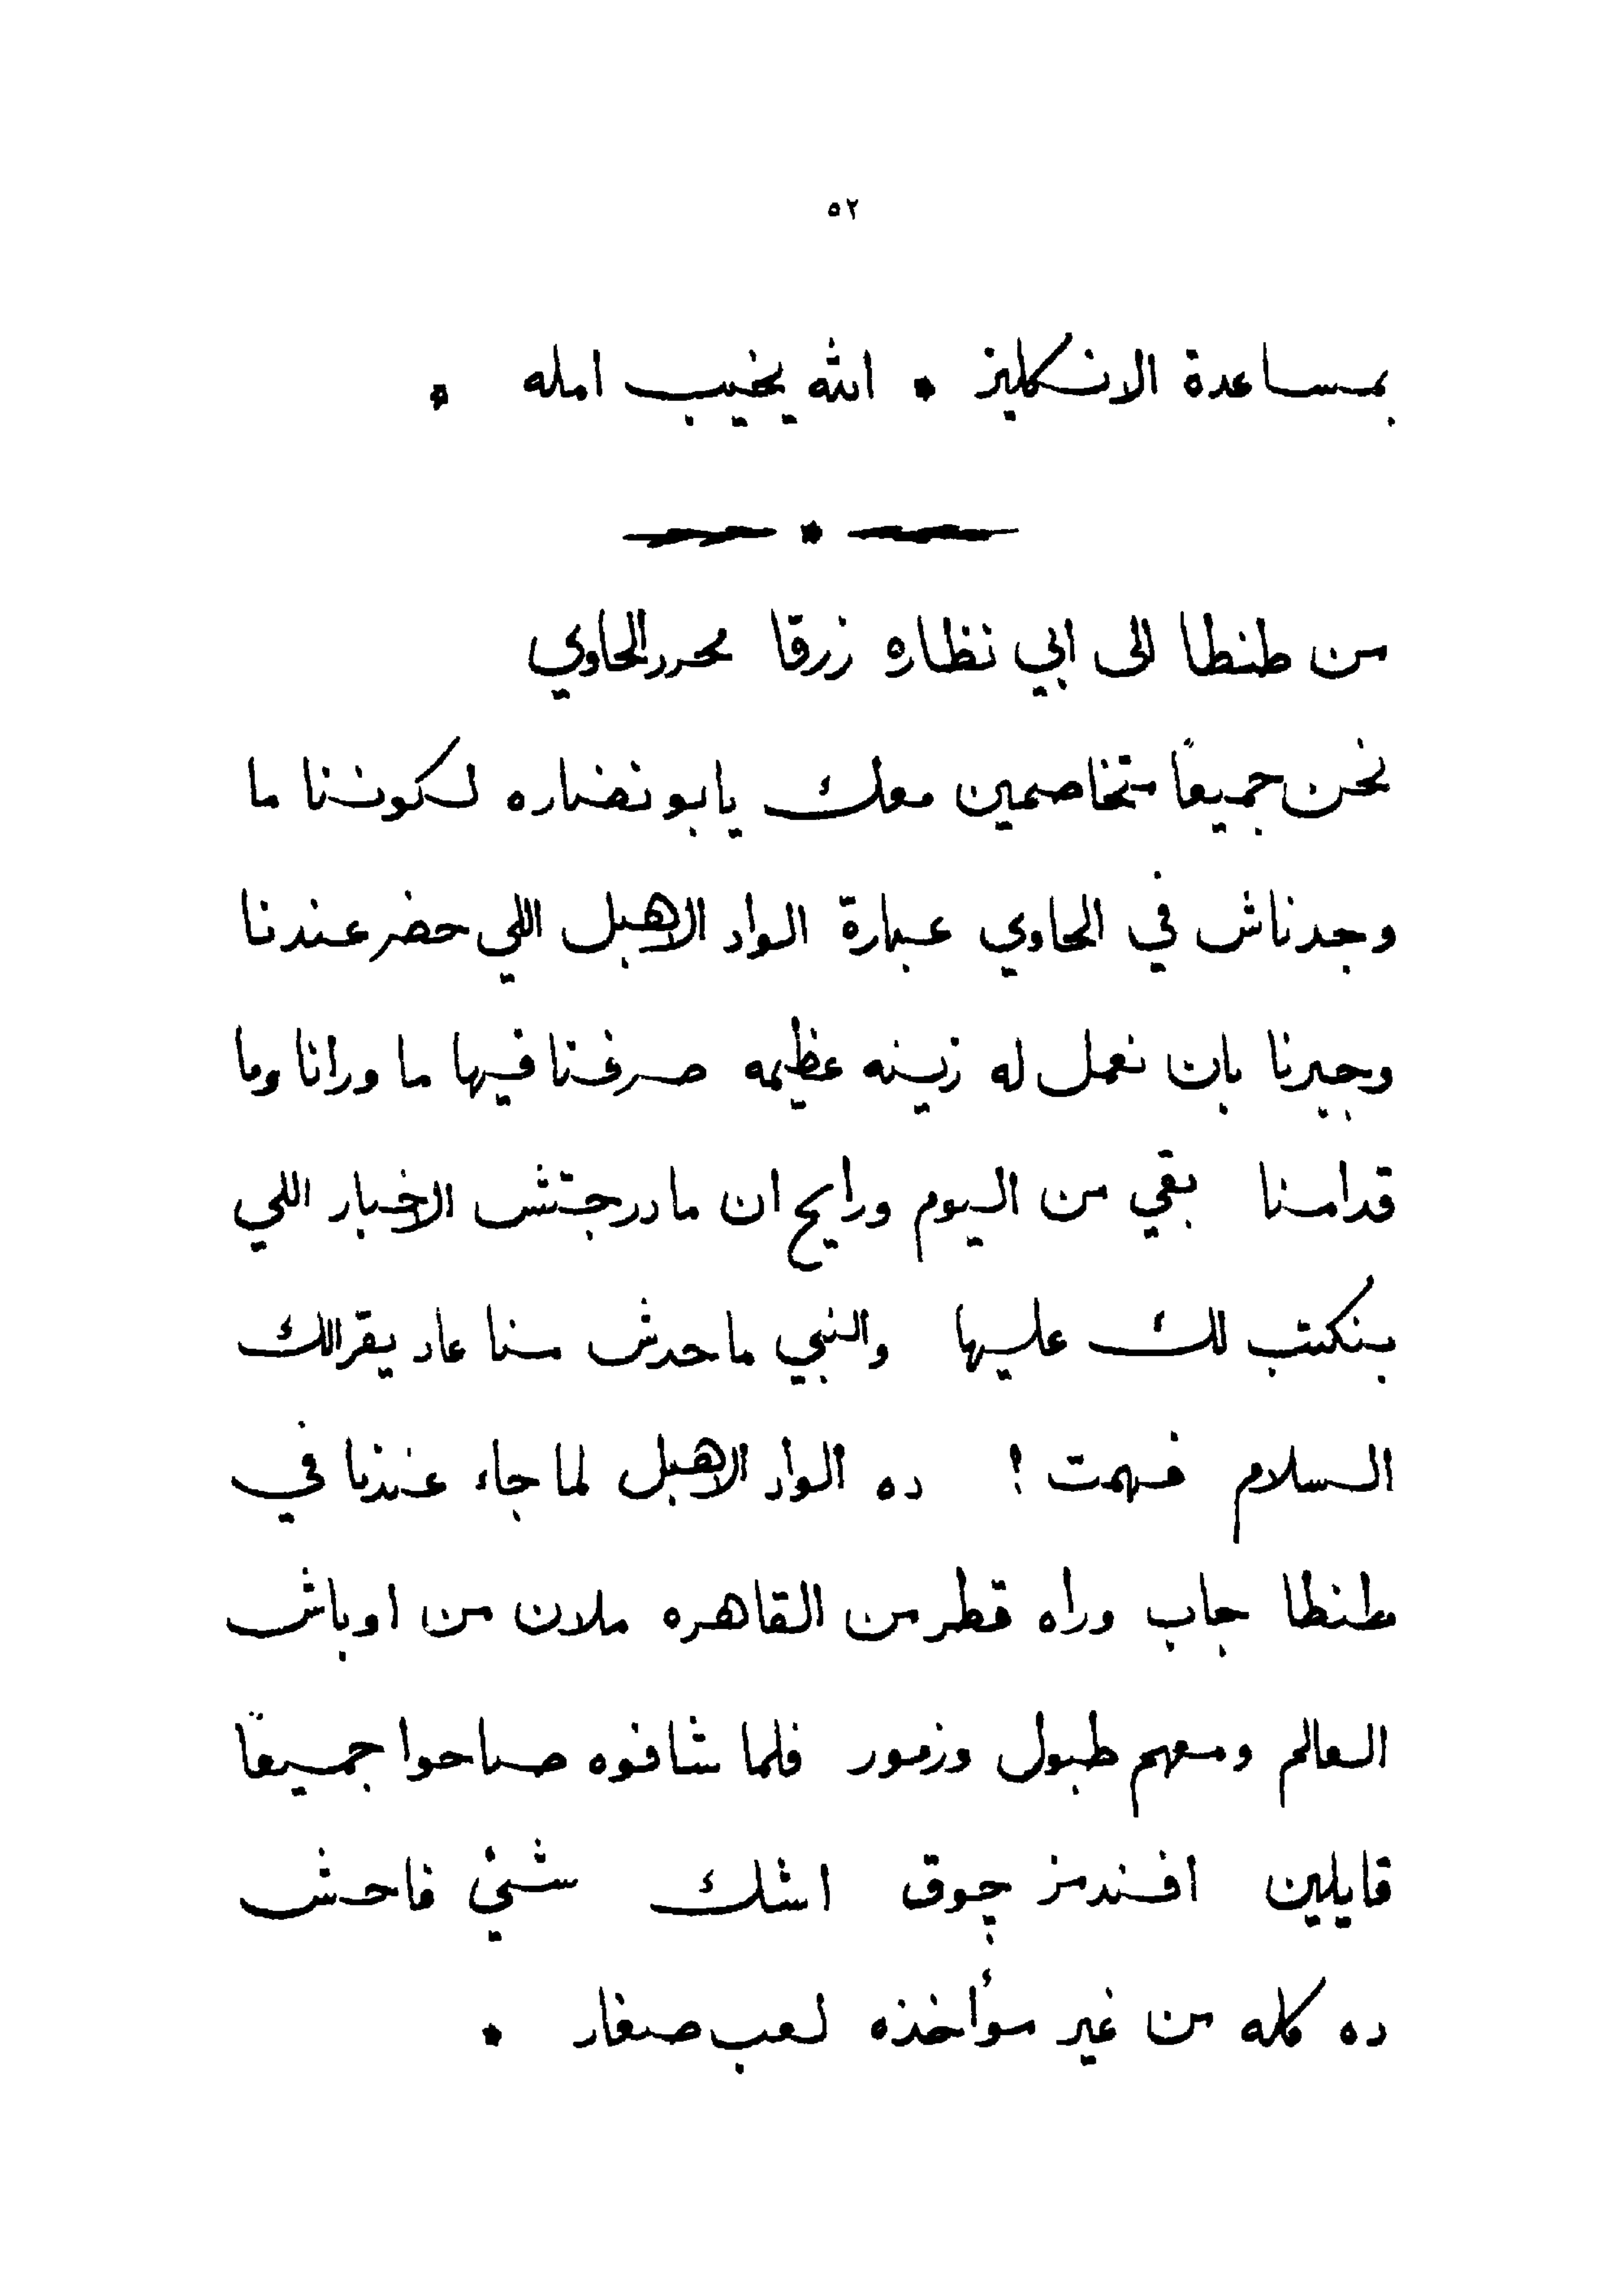 ٥٢
بمساعدة الانكليز * الله يخيب امله *
من طنطا الى ابي نظاره زرقا محررالحاوي
نحن جميعاً متخاصمين معك يابو نضاره لكوننا ما
وجدناش في الحاوي عبارة الواد الاهبل اللي حضر عندنا
وجبرنا بان نعمل له زينه عظيمه صرفنا فيها ما ورانا وما
قدامنا بقي من اليوم ورايح ان مادرجتش الاخبار اللي
بنكتب لك عليها والنبي ماحدش منا عاد يقرالك
السلام فهمت ! ده الواد الاهبل لما جاء عندنا في
طنطا جاب وراه قطر من القاهره ملان من اوباش
العالم ومعهم طبول وزمور فلما شافوه صاحوا جميعاً
قايلين افندمز چوق اشك شيْ فاحش
ده كله من غير موأخذه لعب صغار *